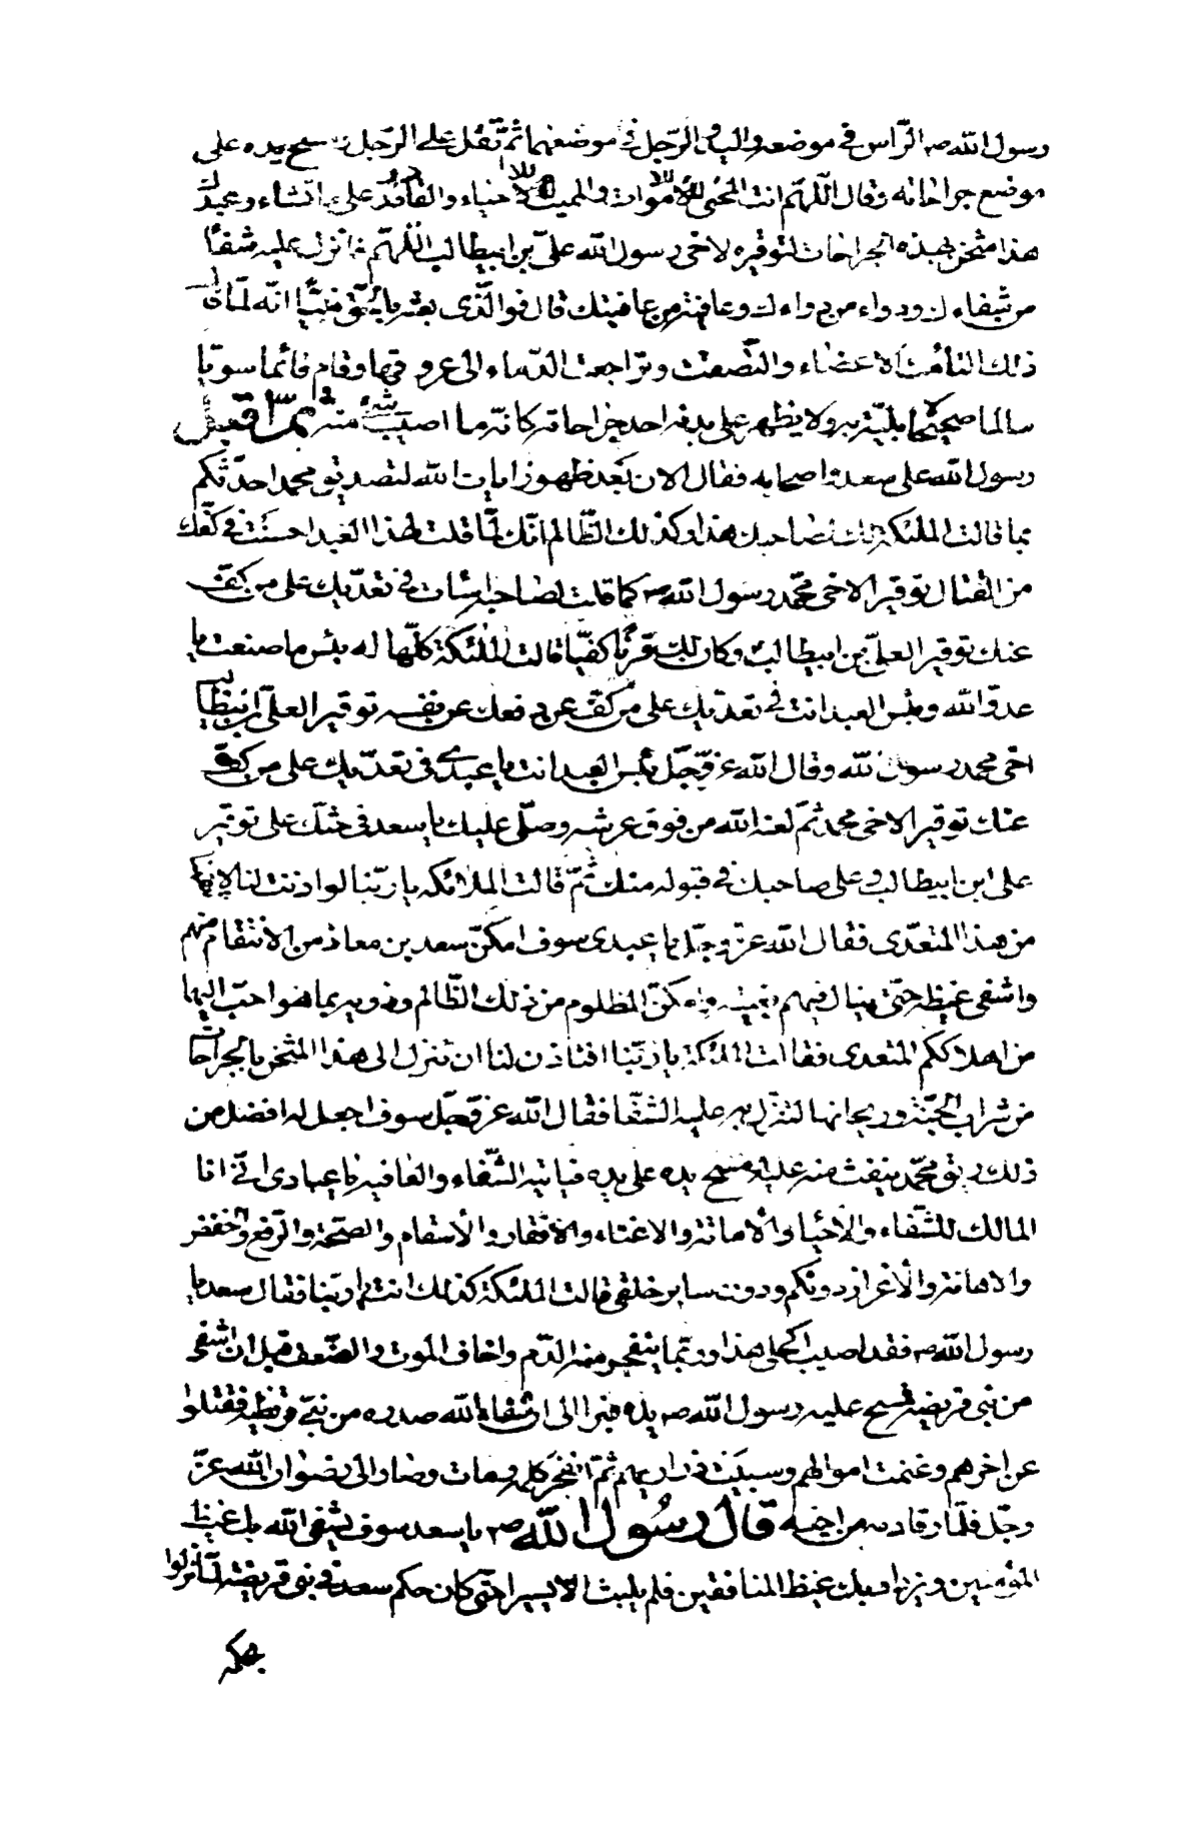 رسول الله ص الرّاس في موضعه واليد والرّجل في موضعهما ثمّ تفل على الرّجل ومسح يده على
موضع جراحاته وقال اللّهمّ انت المحيي للاموات والمميت للاحياء والقادر على ما تشاء وعبدك
هذا مثخن بهذه الجراحات لتوقيره لاخي رسول الله عليّ بن ابيطالب اللّهمّ فانزل عليه شفاء
من شفاءك ودواء من دواءك وعافية من عافيتك قال فوالّذى بعثه بالحقّ نبيّا انّه لمّا قال
ذلك التأمت الاعضاء والتصقت وتراجعت الدّماء الى عروقها وقام قائما سويّا
سالما صحيحا لا بليّة به ولا يظهر على بدنه احد جراحاته كانّه ما اصيب بشئ منه ثمّ اقبل
رسول الله على سعد واصحابه فقال الان بعد ظهور ايات الله لتصديق محمد احدّثكم
بما قالت الملئكة لك لصاحبك هذا وكذلك الظّالم انّك لمّا قلت لهذا العبد احسنت في كفّك
من القتال توقيرا لاخي محمّد رسول الله ص كما قلت لصاحبه اسات في تعدّيك على من كفّ
عنك توقيرا لعليّ بن ابيطالب وكان لك قرنا كفيّا قالت الملئكة كلّها له بئس ما صنعت يا
عدوّ الله وبئس العبد انت في تعدّيك على من كفّ عن دفعك عن نفسه توقيرا لعليّ بن ابيطالب
اخي محمد رسول الله وقال الله عزّ وجلّ بئس العبد انت يا عبدي في تعدّيك على من كفّ
عنك توقيرا لاخي محمد ثمّ لعنه الله من فوق عرشه وصلّى عليك يا سعد في حثّك على توقير
على ابن ابيطالب وعلى صاحبك في قبوله منك ثمّ قالت الملائكه يا ربّنا لو اذنت لنا
من هذا المتعدّى فقال الله عزّ وجلّ يا عبدى سوف امكّن سعد بن معاذ من الانتقام منهم
واشفى غيظه حتّى ينال فيهم بغيته وامكن المظلوم من ذلك الظّالم وذويه بما هو احبّ اليهما
من اهلاككم المتعدى فقالت الملئكة يا ربّنا افتاذن لنا ان تنزل الى هذا المثخن بالجراحات
من شراب الجنّة وريحانها لتنزل به عليه الشّفا فقال الله عزّ وجلّ سوف اجعل له افضل من
ذلك ريق محمّد ينفث منه عليه ومسح يده على يده فياتيه الشّفاء والعافيه يا عبادى انّى انا
المالك للشّفاء والاحياء والاماتة والاغناء والافقار والاسقام والصّحّة والرّفع والخفض
والاهانة والاعزاز دونكم ودون ساير خلقى قالت الملئكة كذلك انت يا ربّنا فقال سعد يا
رسول الله ص فقد اصيب اكحلى هذا وربّما ينفجر منه الدّم واخاف الموت والضّعف قبل ان اشفى
من بنى قريضه فمسح عليه رسول الله ص يده فبرا الى ان شفاه الله صدره من بنى قريظه فقتلوا
عن اخرهم وغنمت اموالهم وسبيت ذراريهم ثمّ انفجر كلمه ومات وصار الى رضوان الله عزّ
وجلّ فلمّا رقا دمه من اجنبه قال رسول الله ص يا سعد سوف يشفى الله بك غيظ
المؤمنين ويزداد بك غيظ المنافقين فلم يلبث الّا يسيرا حتّى كان حكم سعد في بنى قريضه لمّا نزلوا
بحكمه